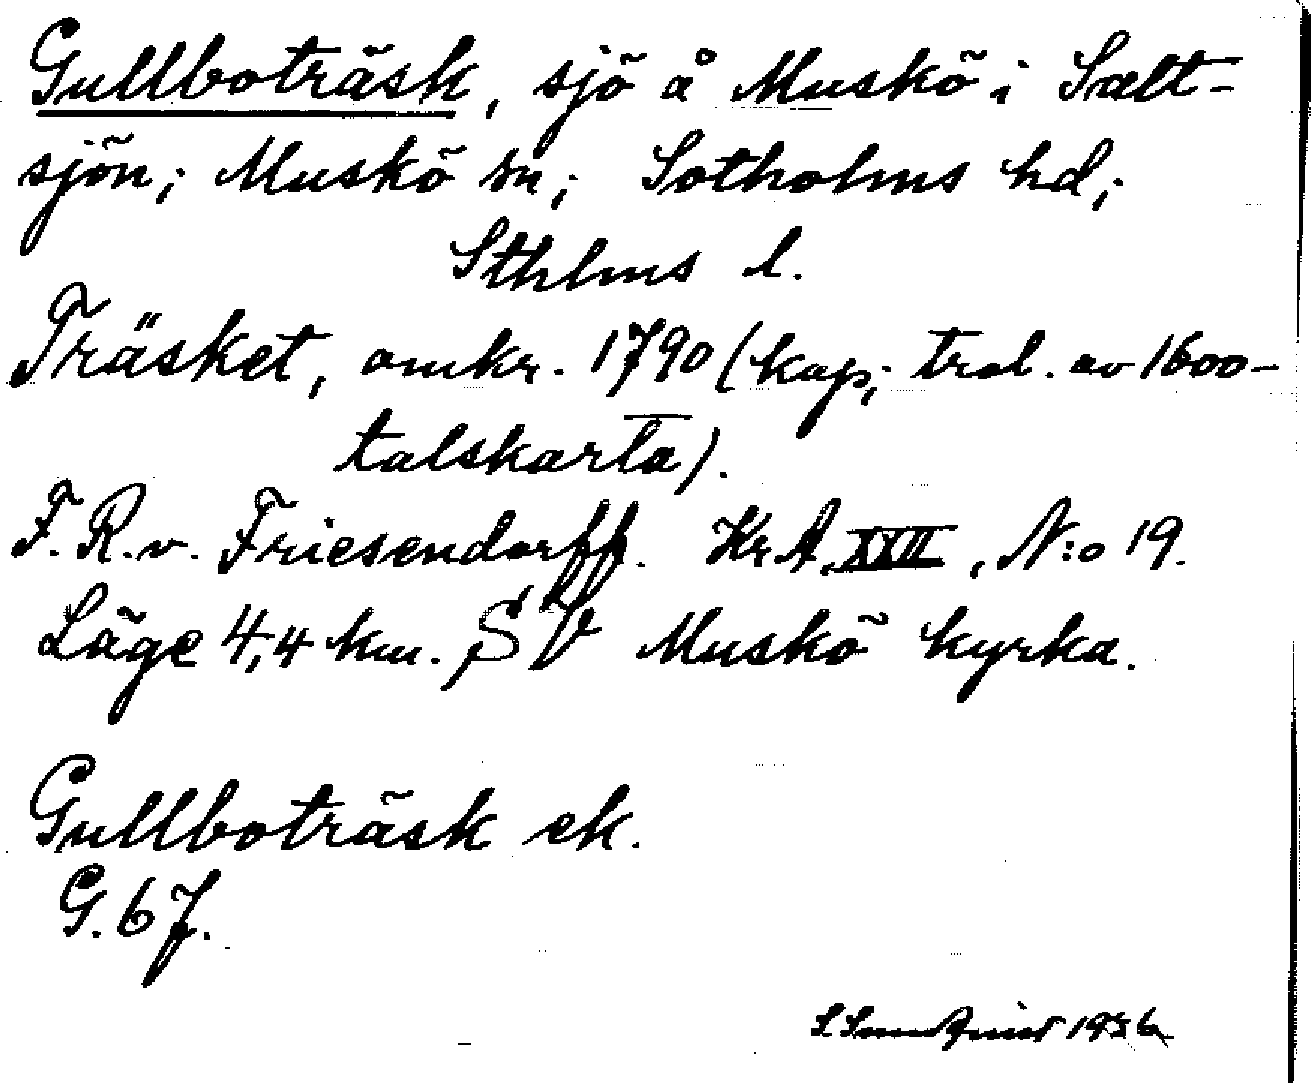 Gullboträsk, sjö å Muskö i Salt-
sjön; Muskö sn; Sotholms hd;
Sthlms l.
Träsket, omkr. 1790 (kop; trol. av 1600-
talskarta).
F. R. v. Friesendorff. Kr.A. XXII, N:o 19.
Läge 4,4 km. SV Muskö kyrka.
Gullboträsk ek.
G. 67.
1936